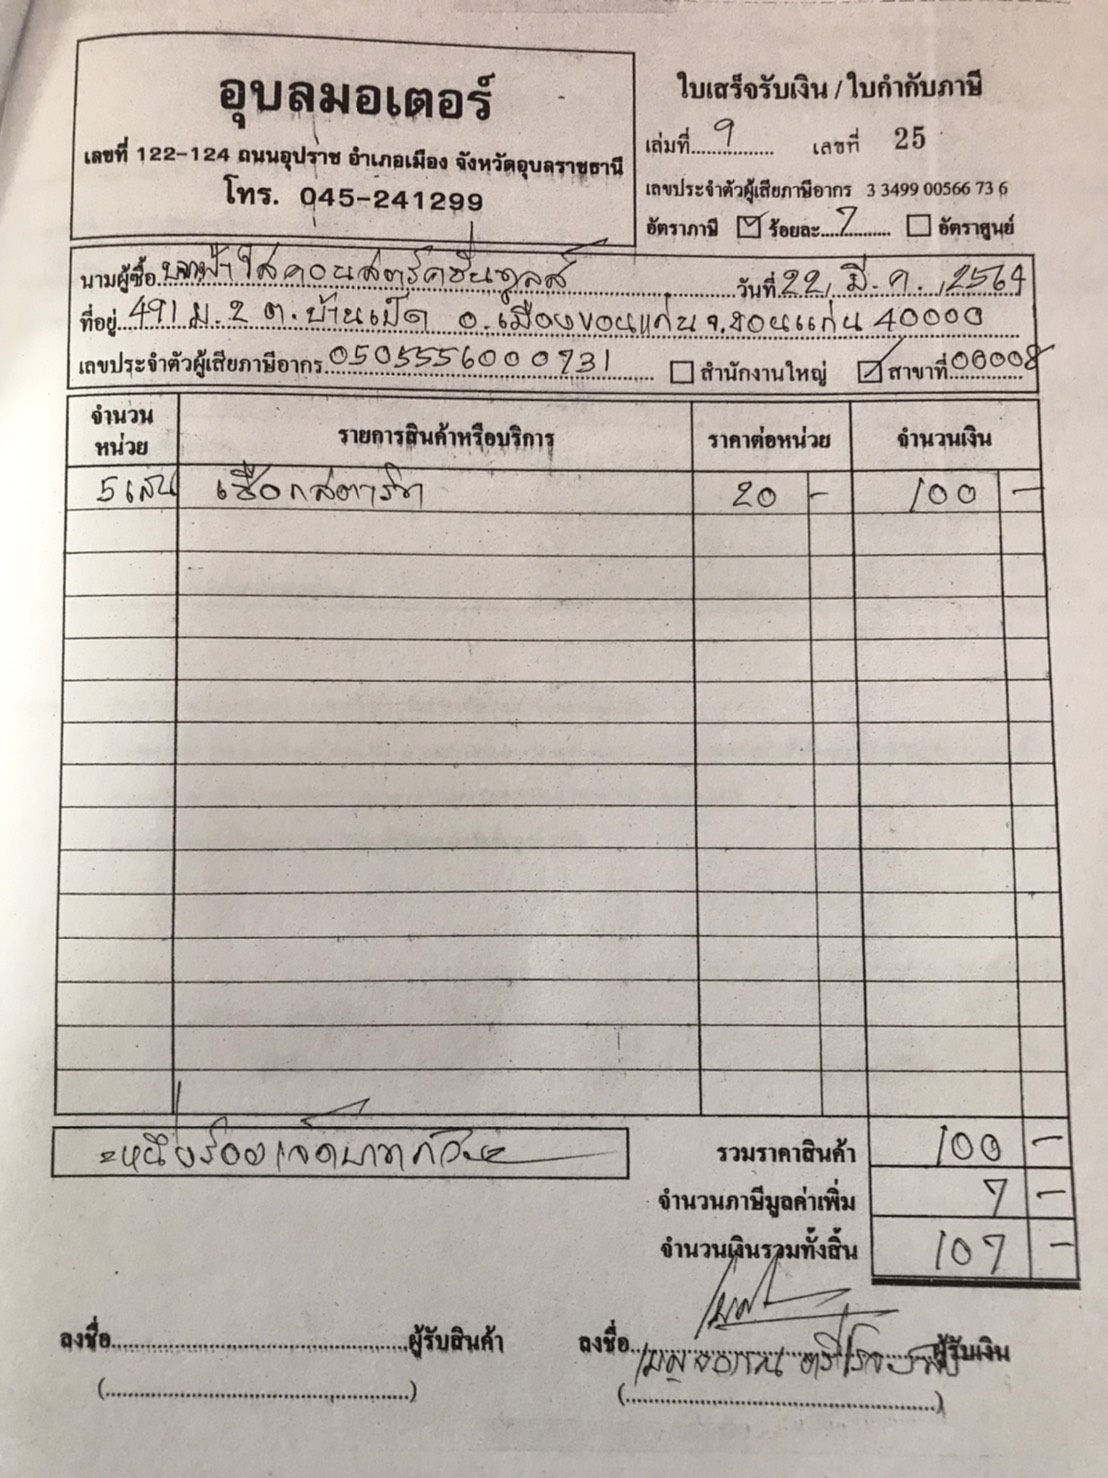 อุบลมอเตอร์
เลขที่ 122-124 ถนนอุปราช อำเภอเมือง จังหวัดอุบลราชธานี
โทร. 045-241299
ใบเสร็จรับเงิน / ใบกำกับภาษี
เล่มที่ 9 เลขที่ 25
เลขประจำตัวผู้เสียภาษีอากร 3 3499 00566 73 6
อัตราภาษี ร้อยละ 7 อัตราศูนย์
นามผู้ซื้อ บจก.ฟ้าใสคอนสตรัคชั่นทูลส์ วันที่ 22, มี.ค., 2564
ที่อยู่ 491 ม.2 ต.บ้านเป็ด อ.เมืองขอนแก่น จ.ขอนแก่น 40000
เลขประจำตัวผู้เสียภาษีอากร 0505556000731 สำนักงานใหญ่ สาขาที่ 00008
จำนวนหน่วย รายการสินค้าหรือบริการ ราคาต่อหน่วย จำนวนเงิน
5 เส้น เชือกสตาร์ท 20 - 100 -
=หนึ่งร้อยเจ็ดบาทถ้วน=
รวมราคาสินค้า 100 -
จำนวนภาษีมูลค่าเพิ่ม 7 -
จำนวนเงินรวมทั้งสิ้น 107 -
ลงชื่อ ผู้รับสินค้า ลงชื่อ ผู้รับเงิน